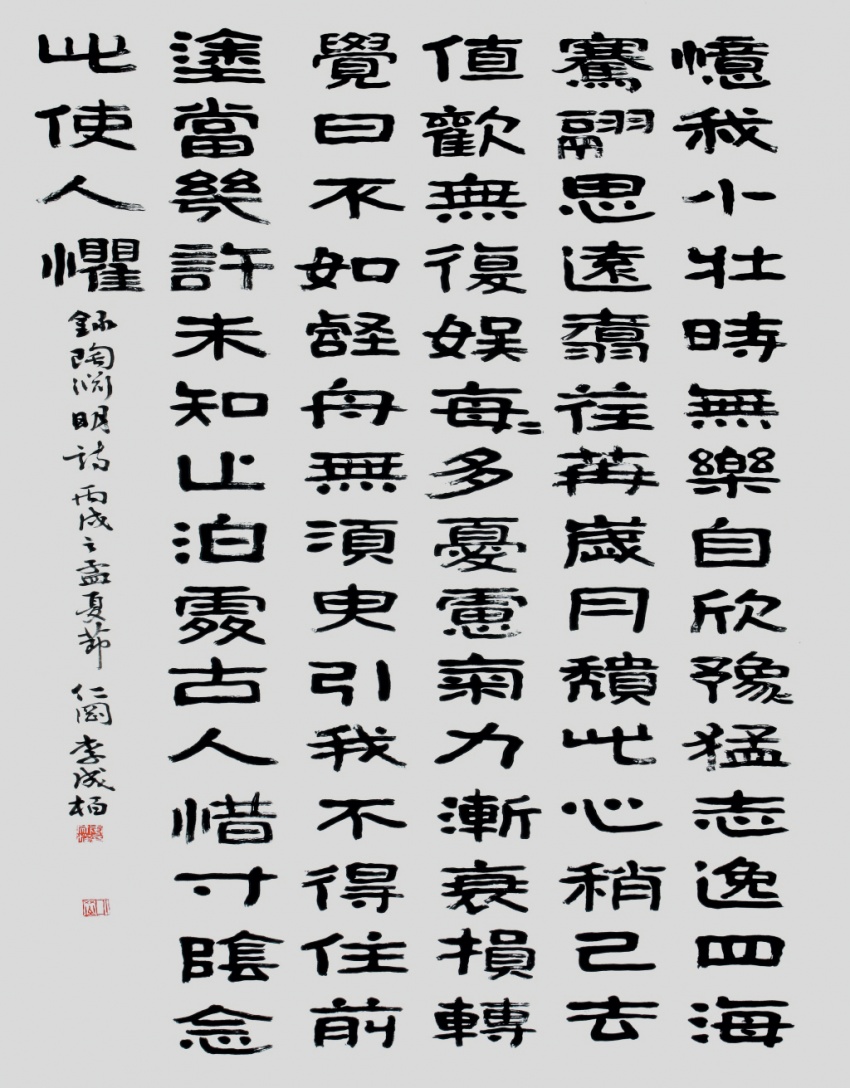 憶我小壯時無樂自欣豫猛志逸四海
騫翮思遠翥荏苒歲月頹此心稍已去
值歡無復娛每〻多憂慮氣力漸衰損轉
覺日不如壑舟無須臾引我不得住前
塗當幾許未知止泊處古人惜寸陰念
此使人懼
錄陶淵明詩 丙戌之孟夏節 仁岡 李成柏